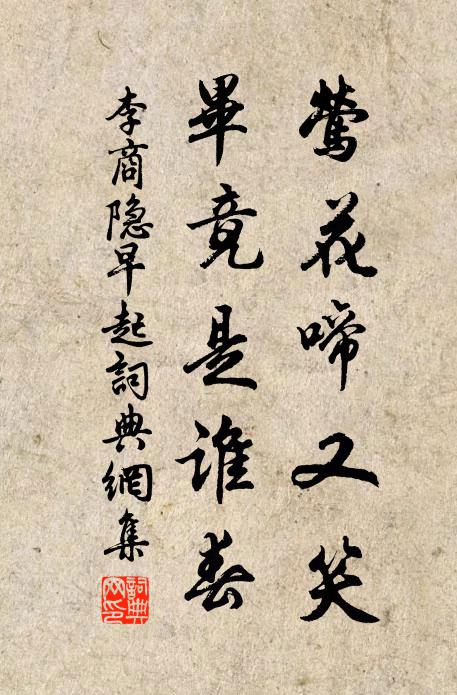 莺花啼又笑
畢竟是誰春
李商隐早起詞典網集
詞典网印